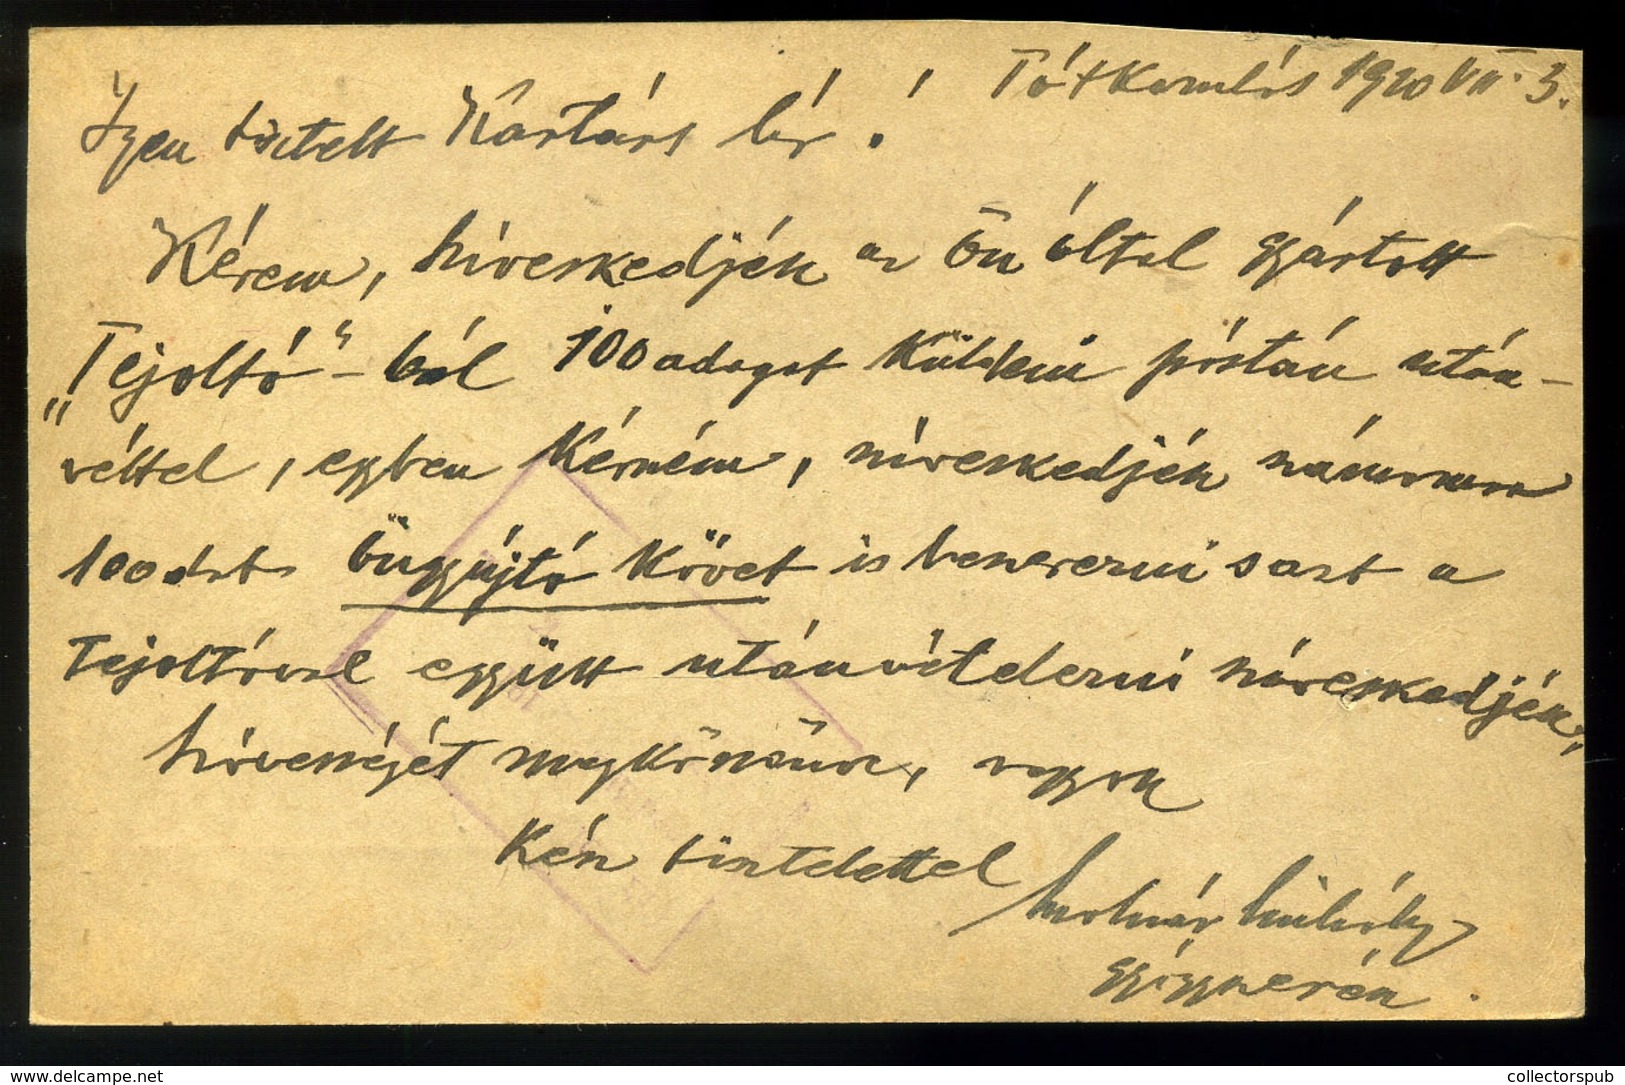 Tótkomlós 1920 VII. 3.
Igen tisztelt Kartárs úr!
Kérem, sziveskedjék az Ön által gyártott
„Tejoltó"-ból 100 adagot küldeni póstán után-
véttel, egyben kérném, sziveskedjék számomra
100 dbt öngyújtó követ is beszerezni s azt a
Tejoltóval együtt utánvételezni sziveskedjék,
szivességét megköszönve, vagyok
Kész tisztelettel
Molnár Mihály
gyógyszerész.
collectorspub